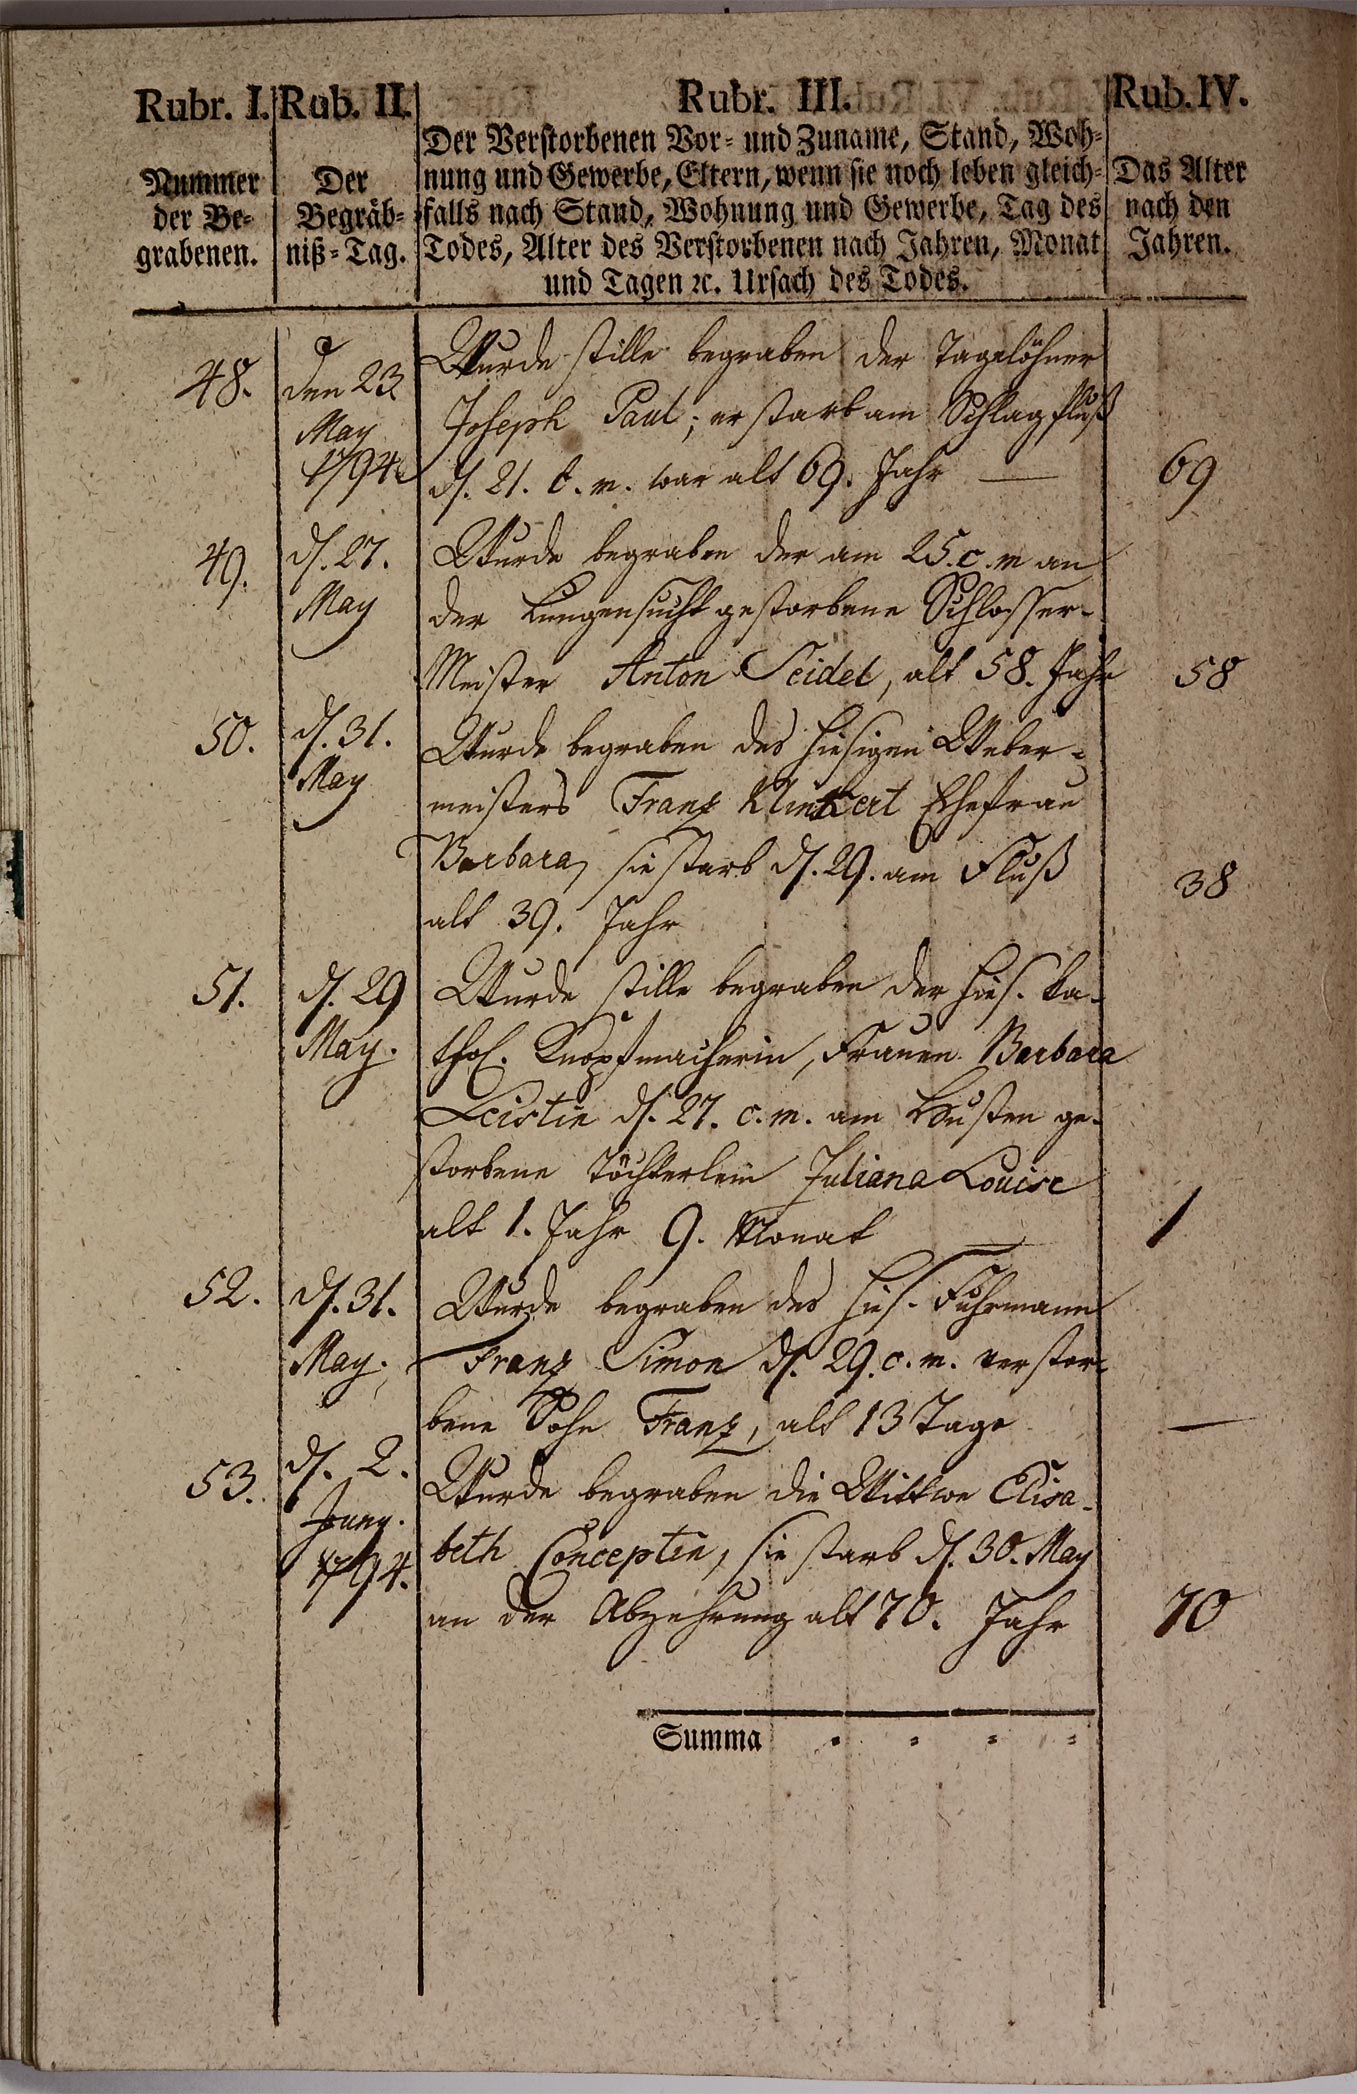 Rubr. I. Rub. II. Rubr. III. Rub. IV.
Nummer der Be-
grabenen.
Der
Begräb-
niß-Tag.
Der Verstorbenen Vor- und Zuname, Stand, Woh-
nung und Gewerbe, Eltern, wenn sie noch leben gleich-
falls nach Stand, Wohnung und Gewerbe, Tag des
Todes, Alter des Verstorbenen nach Jahren, Monat
und Tagen ꝛc. Ursach des Todes.
Das Alter
nach den
Jahren.
48.
den 23
May
1794
Wurde stille begraben der Tagelöhner
Joseph Paul; er starb am Schlagfluß
d. 21. c. m. war alt 69. Jahr
69
49.
d. 27.
May
Wurde begraben der am 25. c. m an
der Lungensucht gestorbene Schlosser-
Meister Anton Seidel, alt 58. Jahr
58
50.
d. 31.
May
Wurde begraben des hiesigen Weber-
meisters Franz Ehefrau
Barbara, sie starb d. 29. am Fluß
alt 39. Jahr
38
51.
d. 29
May.
Wurde stille begraben der hies. ka-
thol. Knopfmacherin, Frauen Barbara
Leistin d. 27. c. m. am Husten ge-
storbene Töchterlein Juliana Louise
alt 1. Jahr 9. Monat
1
52.
d. 31.
May.
Wurde begraben des hies. Fuhrmann
Franz Simon d. 29. c. m. verstor-
bene Sohn Franz, alt 13 Tage
—
53.
d. 2.
Juny.
1794.
Wurde begraben die Wittwe Elisa-
beth Conceptin, sie starb d. 30. May
an der Abzehrung alt 70. Jahr
70
Summa